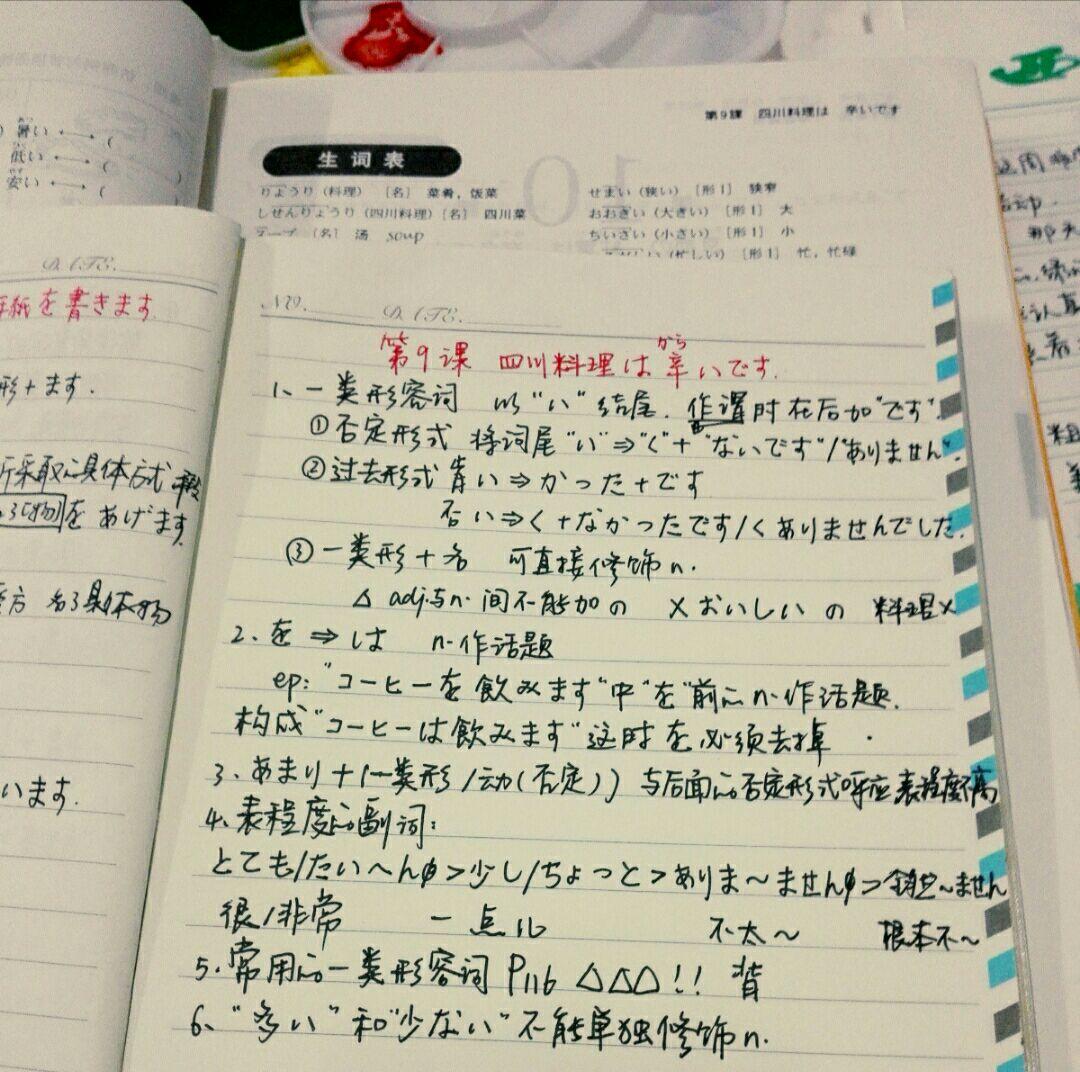 第9課 四川料理は 辛いです
生词表
りょうり（料理） [名] 菜肴，饭菜
せまい（狭い） [形1] 狭窄
しせんりょうり（四川料理）[名] 四川菜
おおきい（大きい） [形1] 大
スープ [名] 汤 soup
ちいさい（小さい） [形1] 小
（忙しい） [形1] 忙，忙碌
暑い ⟷ (
低い ⟷ (
安い ⟷ (
DATE.
紙を書きます
形+ます.
所采取の具体方式
物]をあげます.
名了具体物
います.
NO. DATE.
第9課 四川料理は 辛いです.
から
1、一类形容词 以"い"结尾. 作谓时在后加"です".
①否定形式 将词尾"い"⇒"く"+"ないです"/"ありません".
②过去形式 肯い⇒かった+です
否い⇒く+なかったです/くありませんでした.
③一类形+名 可直接修饰n.
△ adj与n.间不能加の ×おいしいの 料理×
2、を ⇒は n.作话题
ep:"コーヒーを飲みます"中"を"前のn.作话题.
构成"コーヒーは飲みます"这时を必须去掉.
3、あまり+(一类形/动(否定)) 与后面の否定形式呼应表程度不高
4、表程度の副词:
とても/たいへん>少し/ちょっと>ありま～ません>全然～ません
很/非常 一点儿 不太～ 根本不～
5、常用の一类形容词 P116 △△△!! 背
6、"多い"和"少ない"不能单独修饰n.
这周
活动.
那天
认真